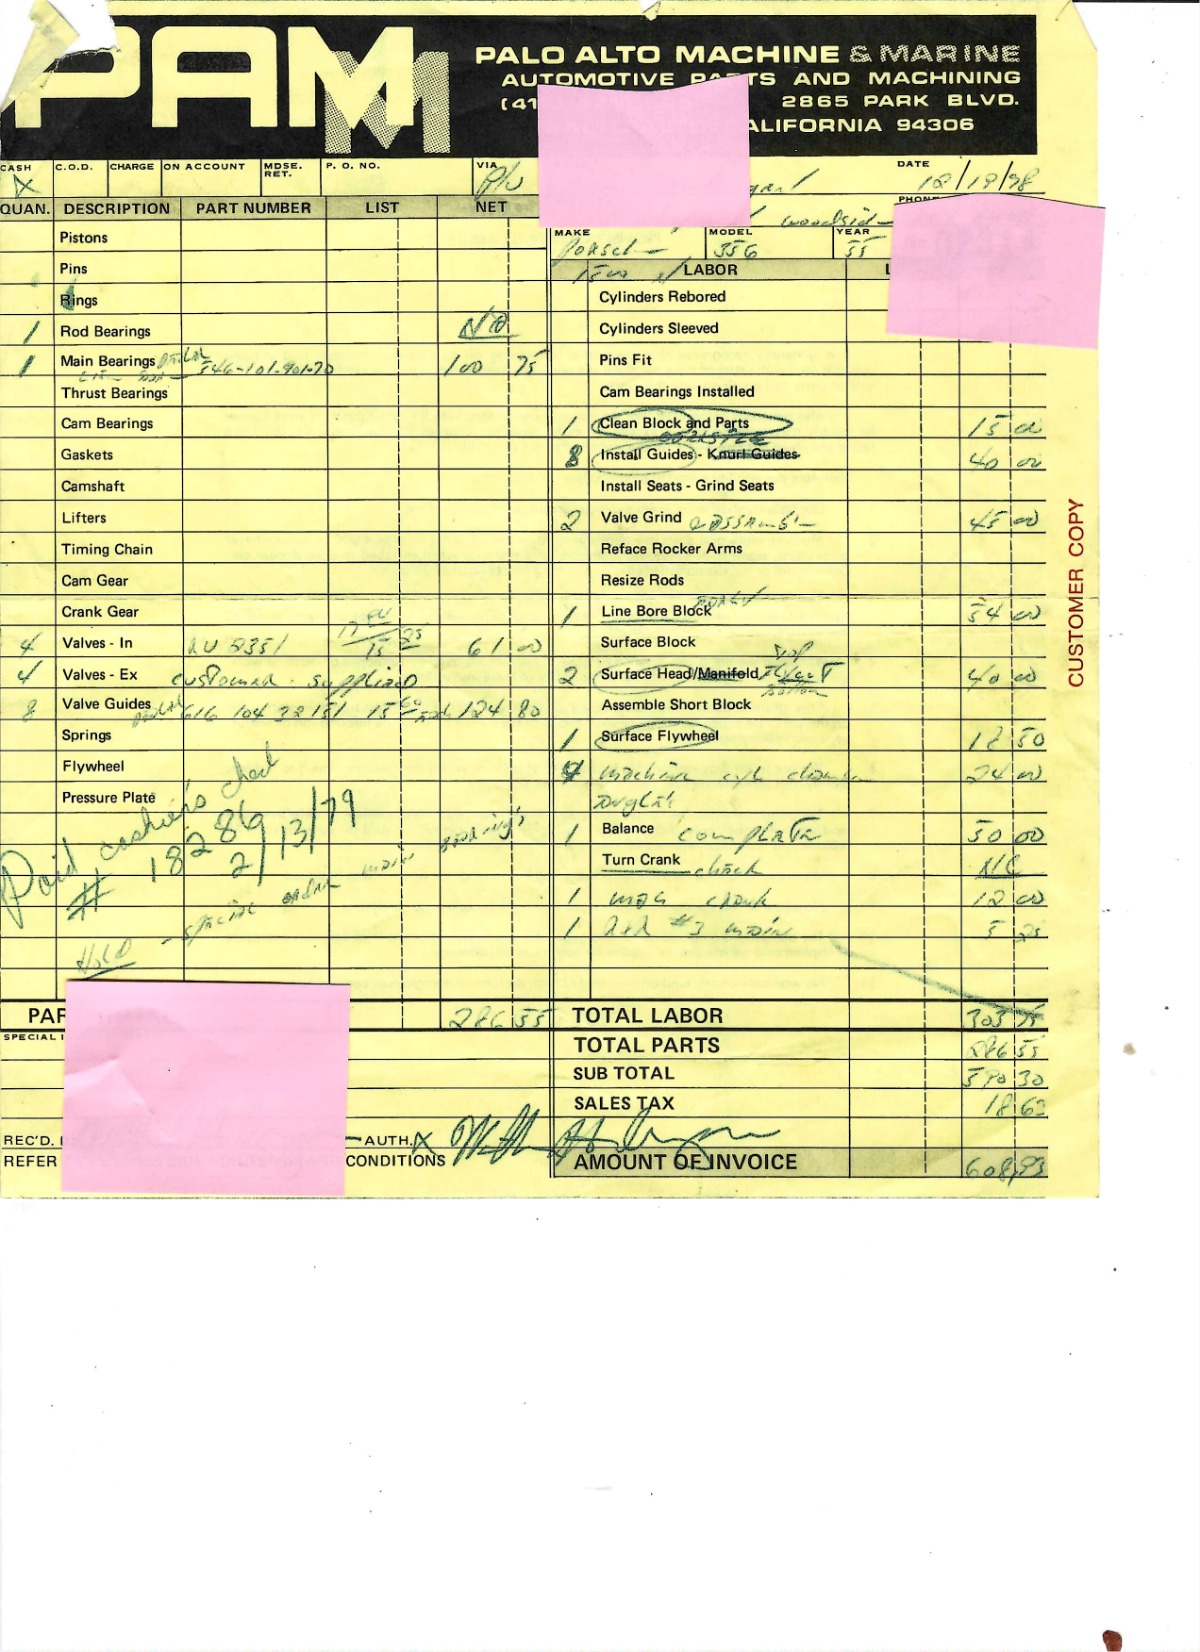 PAMM
PALO ALTO MACHINE & MARINE
AUTOMOTIVE PARTS AND MACHINING
(41 2865 PARK BLVD.
ALIFORNIA 94306
CASH C.O.D. CHARGE ON ACCOUNT MDSE. RET. P. O. NO. VIA DATE
X P/U 12/19/78
PHON
woodside
QUAN. DESCRIPTION PART NUMBER LIST NET
MAKE MODEL YEAR
Porsche 356 55
1500 N LABOR L
Pistons
Pins Cylinders Rebored
Rings Cylinders Sleeved
1 Rod Bearings N/A
1 Main Bearings 546-101-901-70 100 75 Pins Fit
Thrust Bearings Cam Bearings Installed
Cam Bearings 1 Clean Block and Parts 15 00
Gaskets 8 Install Guides - Knurl Guides 40 00
Camshaft Install Seats - Grind Seats
Lifters 2 Valve Grind & assemble 45 00
Timing Chain Reface Rocker Arms
Cam Gear Resize Rods
Crank Gear 1 Line Bore Block 54 00
4 Valves - In RV 2351 15 25 61 00 Surface Block
4 Valves - Ex customer supplied 2 Surface Head/Manifold 40 00
top
bottom
8 Valve Guides 616 104 32151 15 60 each 124 80 Assemble Short Block
Springs 1 Surface Flywheel 18 50
Flywheel 4 machine cyl 24 00
Pressure Plate
1 Balance complete 50 00
Turn Crank check N/C
1 mag crank 12 00
1 #3 main 5 25
Paid cashier's check
# 18286 2/13/79
Hold - special order main bearings
PAR 286 55 TOTAL LABOR 303 75
SPECIAL I
TOTAL PARTS 286 55
SUB TOTAL 590 30
SALES TAX 18 63
REC'D. AUTH. X
REFER CONDITIONS AMOUNT OF INVOICE 608,93
CUSTOMER COPY